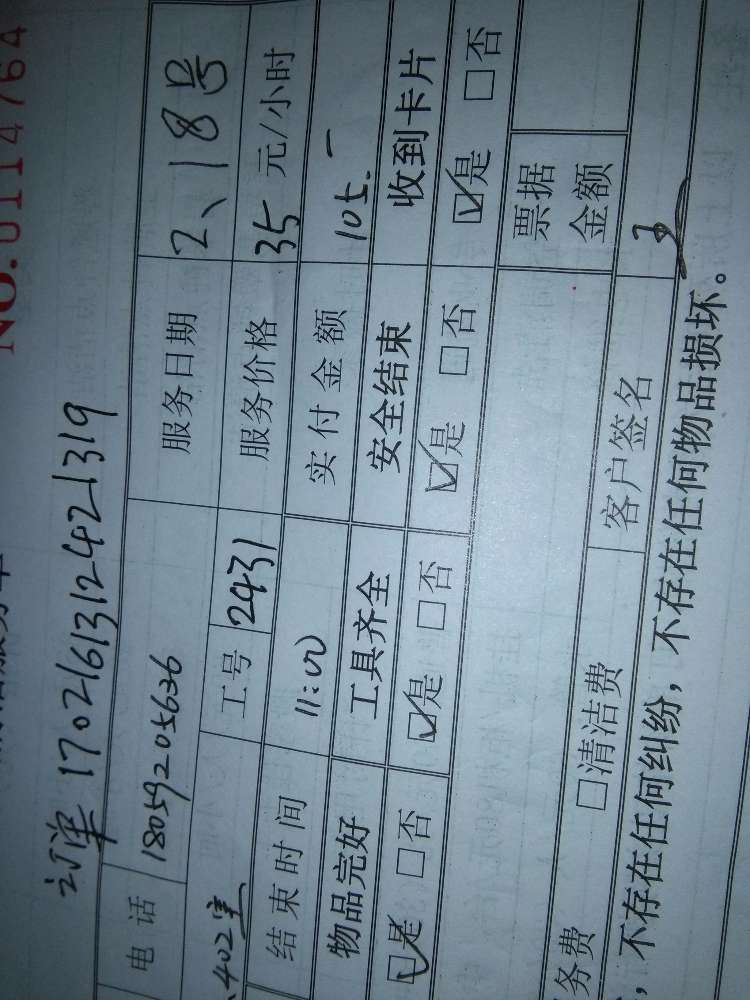 NO.0114764
订单 1702161312421319
电话 18059205636 服务日期 2、18号
402室 工号 2431 服务价格 35元/小时
结束时间 11:00 实付金额 105.-
物品完好 工具齐全 安全结束 收到卡片
☑是 □否 ☑是 □否 ☑是 □否 ☑是 □否
票据金额
务费 □清洁费 客户签名
，不存在任何纠纷，不存在任何物品损坏。